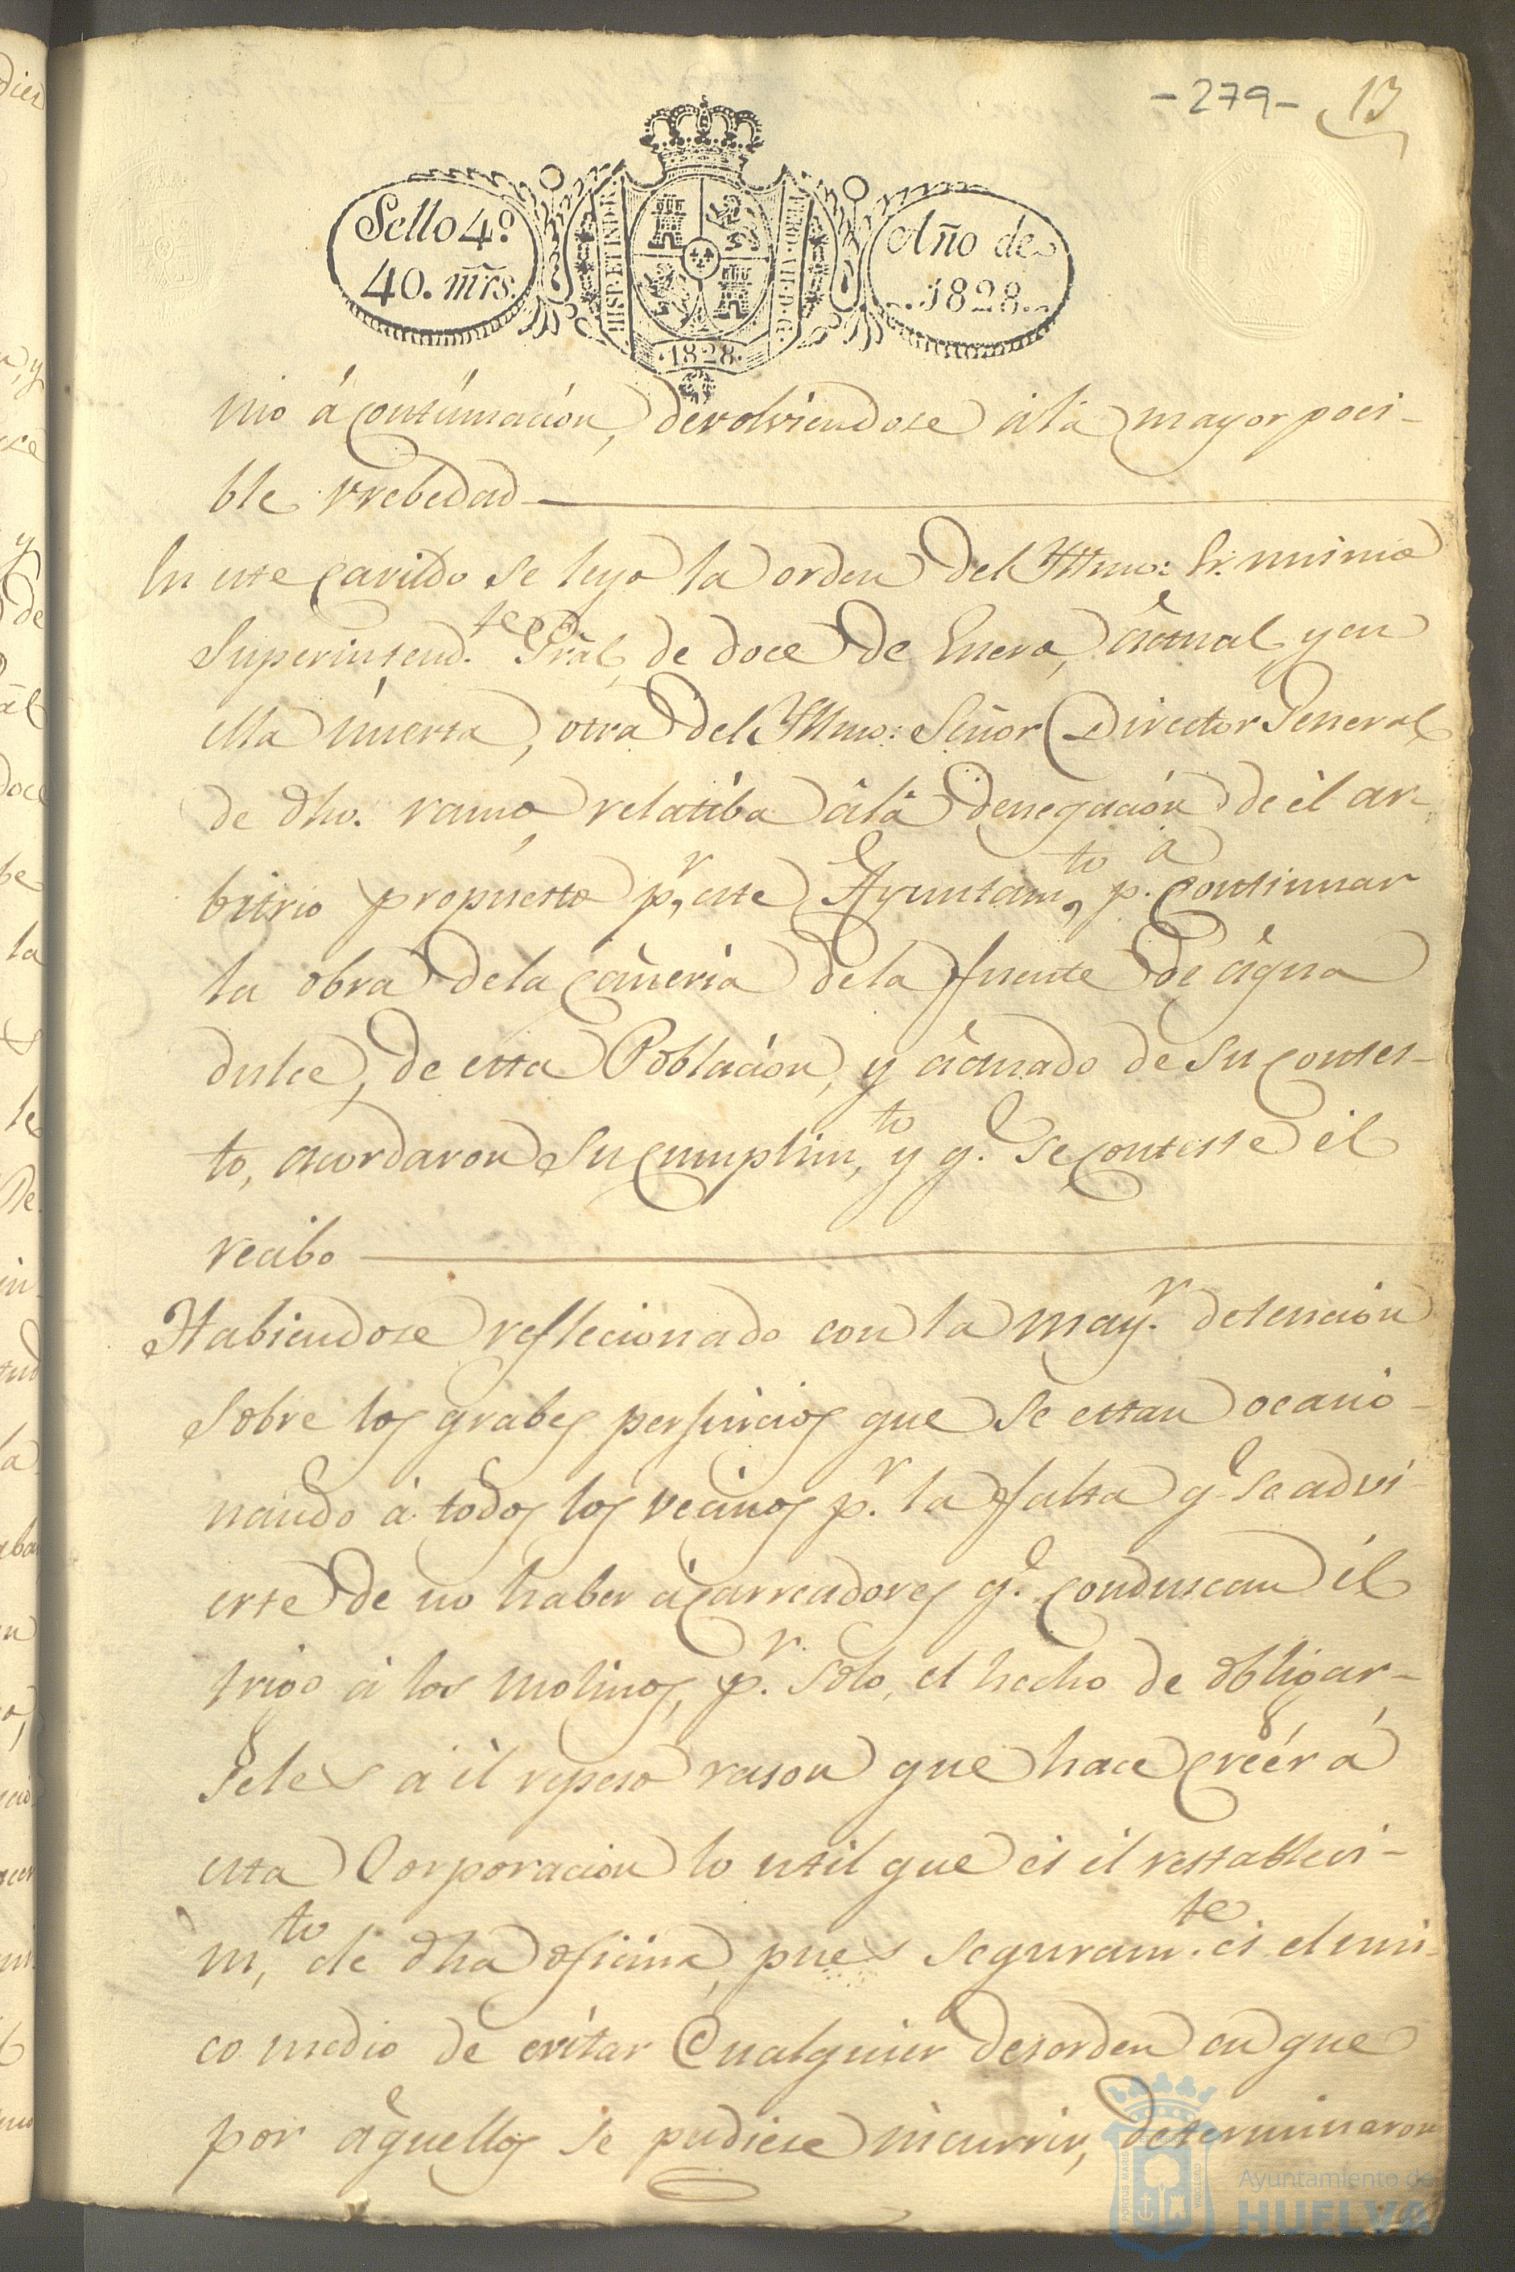 -279- 13
Sello 4º
40. mrs.
HISP. ET IND. R.
FERD. VII. D. G.
Año de
1828.
.1828.
nio á continuacion, devolviendose á la mayor poci-
ble vrebedad
En este cavildo se leyo la orden del Yltmo: Sr.
Superintend.te Gral, de doce de Enero, áctual, y en
ella ynserta, otra del Yltmo: Señor Director General
de dho. ramo, relatiba álá denegación de él ar-
bitrio propuesto pr, este Ayuntam,to p.a Continuar
la obra de la Cañeria de la fuente de água
dulce, de esta Poblacion, y de su contes-
to, acordaron su cumplim,to y q.e se conteste él
recibo
Habiendose reflecionado con la may.r detencion
sobre los grabes perjuicios que se estan ocacio-
nando á todos los vecinos p.r la falta q.e se advi-
erte de no haber ácarreadores q.e conduscan él
trigo á los molinos, p.r solo, el hecho de obligar-
seles á él repeso rason que hace creér á
esta Corporacion lo util que es él restableci-
m,to de dha oficina, pues seguram.te es el uni-
co medio de evitar Cualquier desorden en que
por áquellos se pudiese incurrir, determinaron
PORTUS MARIS
Ayuntamiento de
HUELVA